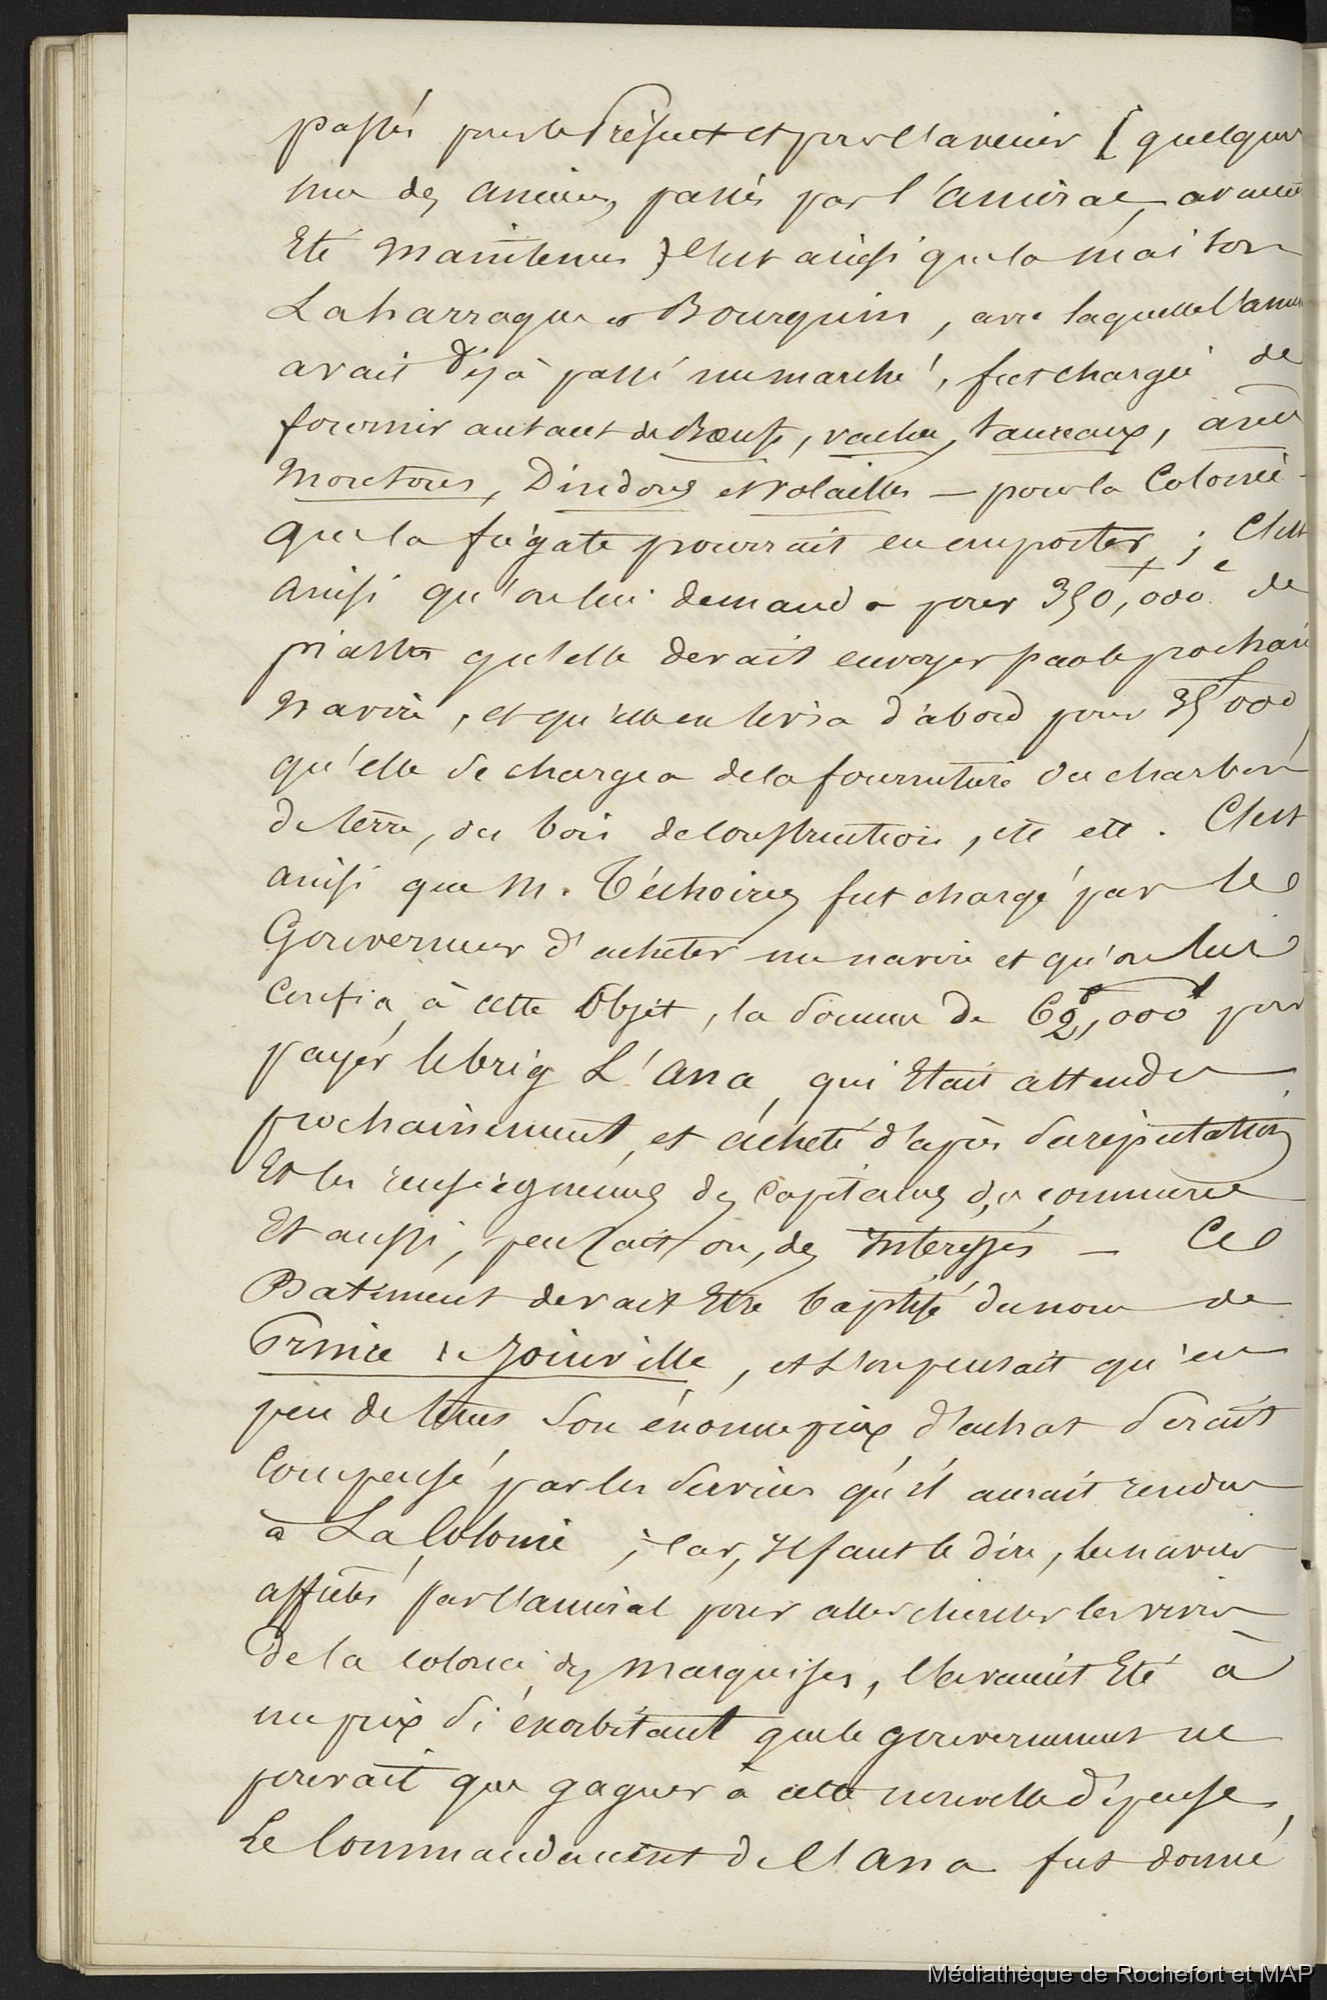 passés pour le Présent et pour l'avenir [ quelques
uns des anciens, passés par l'amiral, avaient
Eté maintenus ] c'est ainsi que la maison
Laharrague et Bourguin, avec laquelle l'ami
avait déjà passé un marché, fut chargée de
fournir autant de Boeufs, vaches, taureaux, anes
moutons, Dindons et volailles – pour la Colonie
que la frégate pourrait en emporter ; C'est
ainsi qu'on lui demanda pour 350,000 de
piastres qu'elle devait envoyer par le prochain
navire, et qu'elle en livra d'abord pour 35000
qu'elle se chargea de la fourniture du charbon
de terre, du bois de construction, etc etc. C'est
ainsi que M. fut chargé par le
Gouverneur d'acheter un navire et qu'on lui
Confia, à cette Objet, la somme de 000 pour
payer le brig L'Ana, qui Etait attendu
prochainement, et acheté d'après sa réputation
Et les renseignemens des Capitaines du commerce
Et aussi, pensait on, des Interessés – Ce
Batiment devait Etre baptisé du nom de
Prince de Joinville, et l'on pensait qu'en
peu de tems Son énorme prix d'achat Serait
Compensé par les Services qu'il aurait rendus
à La Colonie ; Car, Il faut le dire, les navires
affrétés par l'amiral pour aller chercher les vivres
De la colonie des Marquises, l'avaient Eté à
un prix Si exorbitant que le gouvernement ne
pouvait que gagner à cette nouvelle dépense,
Le Commandement de l'Ana fut donné